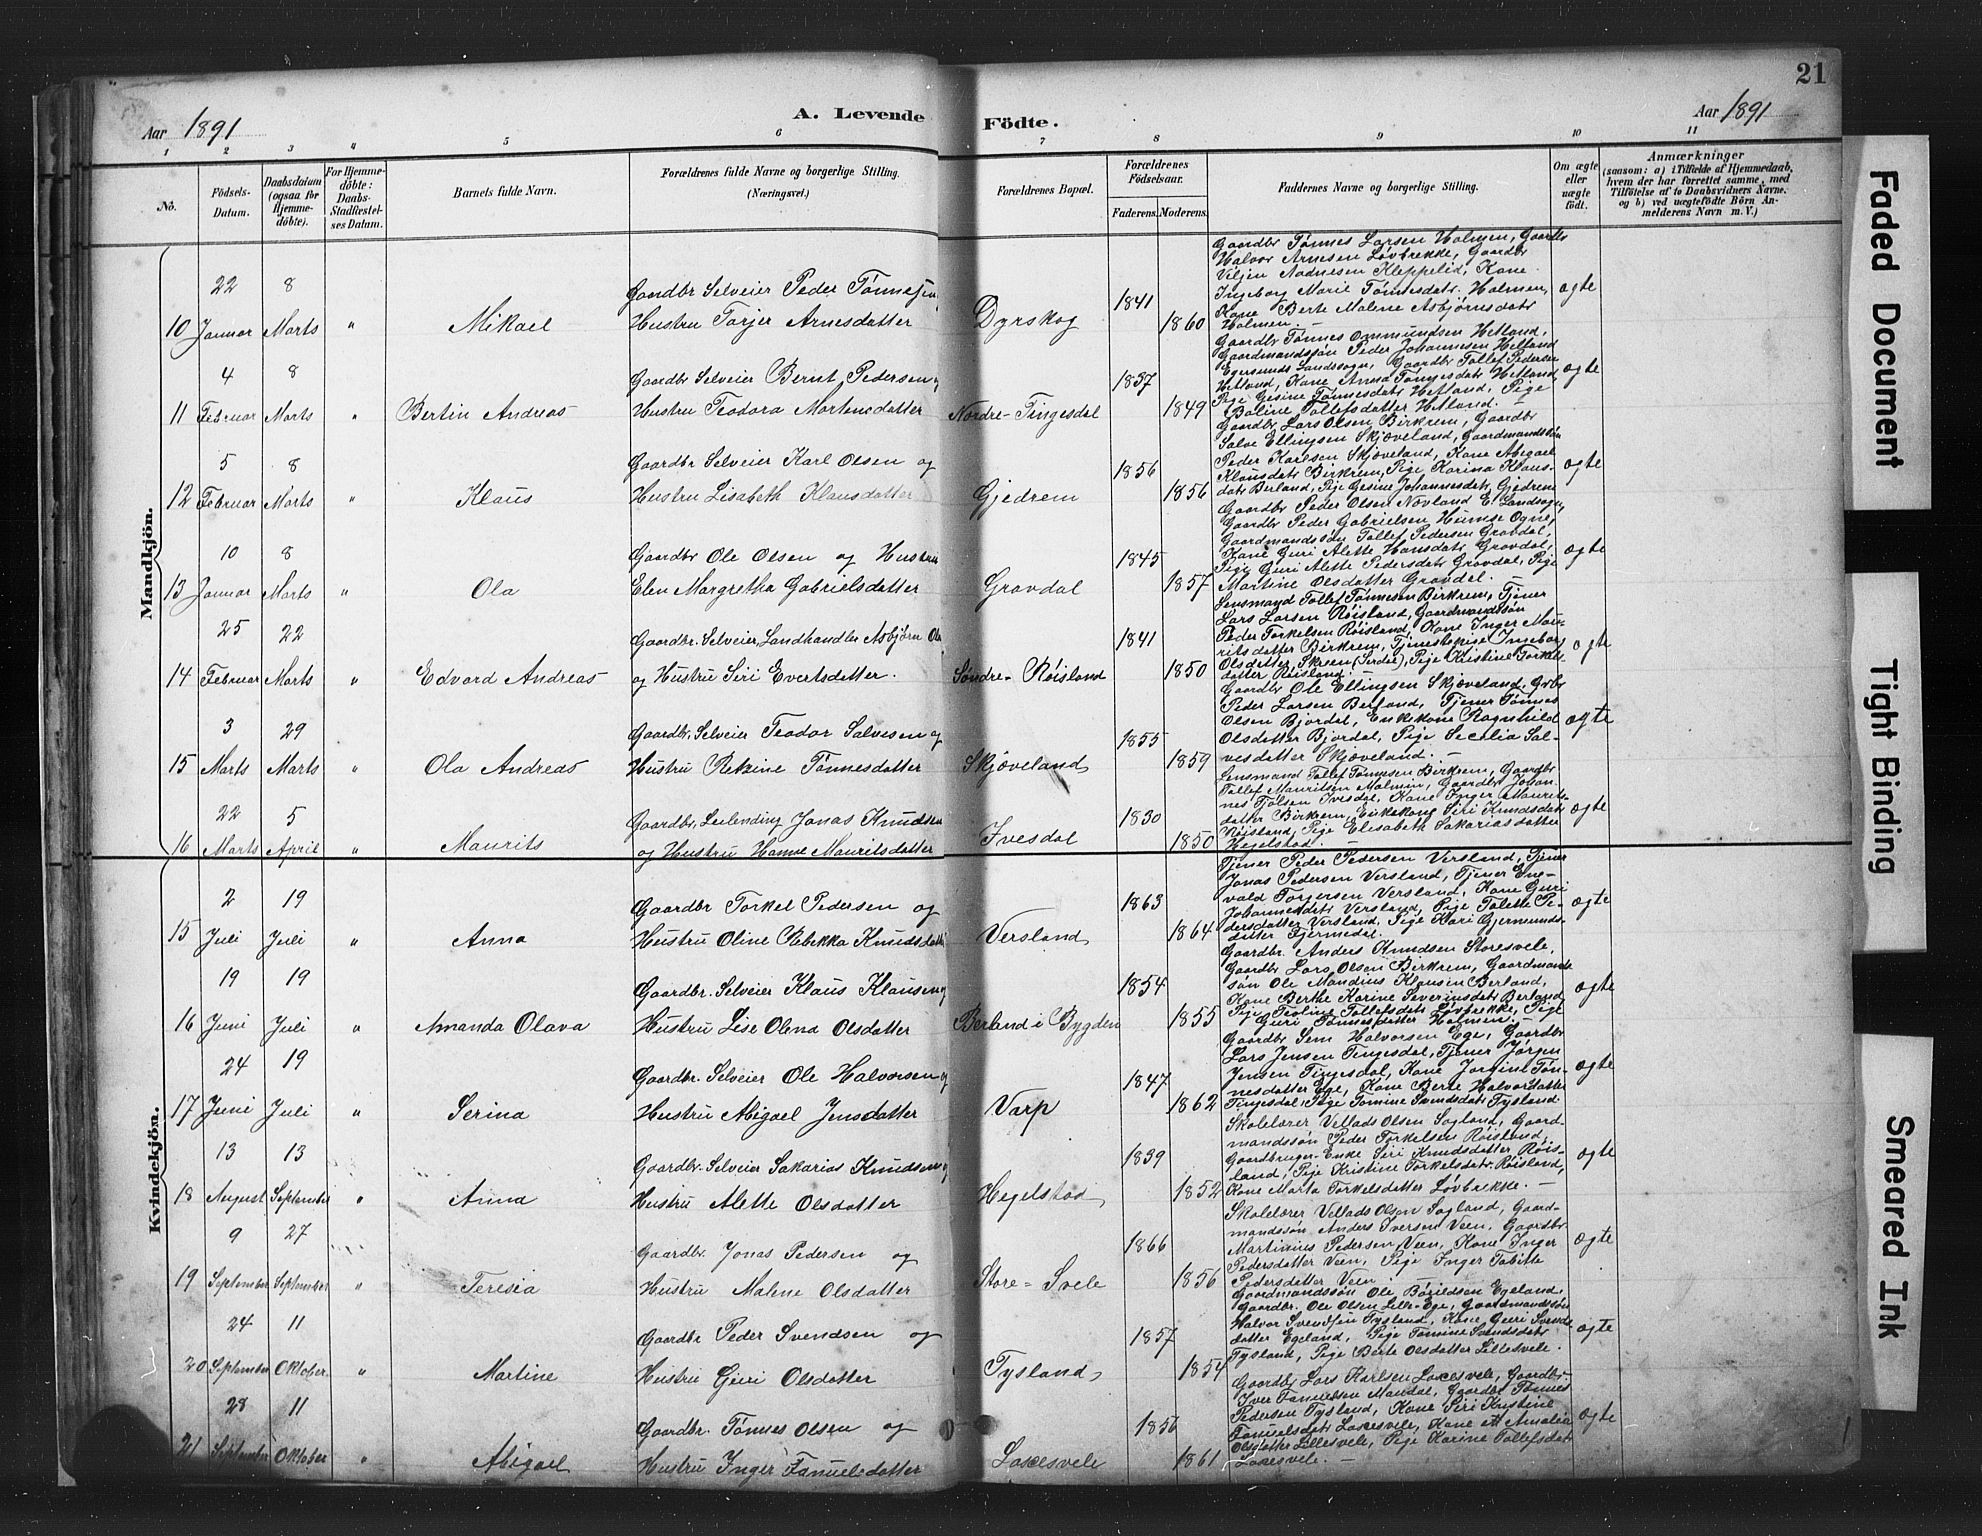 21
Aar 1891
A. Levende Födte.
Aar 1891
1 2 3 4 5 6 7 8 9 10 11
No.
Födsels-Datum.
Daabsdatum (ogsaa for Hjemmedöbte).
For Hjemmedöbte: Daabs-Stadfæstelses Datum.
Barnets fulde Navn.
Forældrenes fulde Navne og borgerlige Stilling. (Næringsvei.)
Forældrenes Bopæl.
Forældrenes Födselsaar.
Faderens. Moderens.
Faddernes Navne og borgerlige Stilling.
Om ægte eller uægte födt.
Anmærkninger
(saasom: a) i Tilfælde af Hjemmedaab, hvem der har forrettet samme, med Tilföielse af to Daabsvidners Navne. og b) ved uægtefödte Börn Anmelderens Navn m. V.)
Mandkjön.
10 22 Januar 8 Marts " Mikael
Gaardbr Selveier Peder Tönnesen
Hustru Torjer Arnesdatter
Dyrskog 1841 1860
Gaardbr Tönnes Larsen Holmen, Gaardbr
Halvor Arnesen Lövbrekke, Gaardbr
Viljen Aadnesen Kleppelid, Kone
Ingeborg Marie Tönnesdatr Holmen,
Kone Berte Malene Asbjörnsdatr
Holmen. ægte
11 4 Februar 8 Marts " Bertin Andreas
Gaardbr Selveier Bernt Pedersen og
Hustru Teodora Mortensdatter
Nordre-Tingesdal 1837 1849
Gaardbr Tönnes Ommundsen Hetland,
Gaardmandssön Peder Johannesen Hetland
Egersunds Landssogn, Gaardbr Tollef Pedersen
Hetland, Kone Anna Tönnesdatr Hetland,
Pige Gesine Tönnesdatr Hetland, Pige
Boline Tollefsdatter Hetland. ægte
12 5 Februar 8 Marts " Klaus
Gaardbr Selveier Karl Olsen og
Hustru Lisabeth Klausdatter
Gjedrem 1856 1856
Gaardbr Lars Olsen Birkrem, Gaardbr
Salve Ellingsen Skjæveland, Gaardmandssön
Peder Karlsen Skjæveland, Kone Abigael
Klausdatr Birkrem, Pige Karina Klausdatr Berland, Pige Gesine Johannesdatr Gjedrem ægte
13 10 Januar 8 Marts " Ola
Gaardbr Ole Olsen og Hustru
Elen Margretha Gabrielsdatter
Gravdal 1845 1857
Gaardbr Peder Olsen Novland E. Landsogn,
Gaardbr Peder Gabrielsen Humse Ogne,
Gaardmandssön Tollef Pedersen Gravdal,
Kone Guri Alette Hansdatr Gravdal,
Pige Guri Alette Pedersdatr Gravdal, Pige
Martine Olsdatter Gravdal. ægte
14 25 Februar 22 Marts " Edvard Andreas
Gaardbr. Selveier, Landhandler Asbjörn Ols
og Hustru Siri Evertsdatter.
Söndre-Röisland 1841 1850
Lensmand Tollef Tönnesen Birkrem, Tjener
Lars Larsen Röisland, Gaardmandssön
Peder Torkelsen Röisland, Kone Inger Mauritsdatter Birkrem, Tjenestepige Ingeborg
Olsdatter Skreen (Serdel), Pige Kristine Torkelsdatter Röisland. ægte
15 3 Marts 29 Marts " Ola Andreas
Gaardbr. Selveier Teodor Salvesen og
Hustru Rekine Tönnesdatter
Skjæveland 1855 1859
Gaardbr Ole Ellingsen Skjæveland, Grbr
Peder Larsen Berland, Tjener Tönnes
Olsen Bjordal, Enkekone Ragnhild
Olsdatter Bjordal, Pige Secelia Salvesdatter Skjæveland. ægte
16 22 Marts 5 April " Maurits
Gaardbr. Leilending Jonas Knudsen
og Hustru Hanne Mauritsdatter
Ivesdal 1830 1850
Lensmand Tollef Tönnesen Birkrem, Gaardbr
Tollef Mauritsen Malmin, Gaardbr Johannes Tjölsen Ivesdal, Kone Inger Mauritsdatter Birkrem, Enkekone Siri Knudsdatr
Röisland, Pige Elisabeth Sakariasdatter
Hegelstad. ægte
Kvindekjön.
15 2 Juli 19 Juli " Anna
Gaardbr Torkel Pedersen og
Hustru Oline Rebekka Knudsdatter
Versland 1863 1864
Tjener Peder Pedersen Versland, Tjener
Jonas Pedersen Versland, Tjener Enevald Torgersen Versland, Kone Guri
Johannesdatr Versland, Pige Tolette Pedersdatter Versland, Pige Kari Gjermundsdatter Gjermedal. ægte
16 19 Juni 19 Juli " Amanda Olava
Gaardbr. Selveier Klaus Klausen og
Hustru Lise Olena Olsdatter
Berland i Bygden 1854 1855
Gaardbr. Anders Knudsen Storesvele,
Gaardbr Lars Olsen Birkrem, Gaardmandssön Ole Mandius Klausen Berland,
Kone Berthe Karine Severinsdatr Berland,
Pige Teoline Tollefsdatr Lövbrekke, Pige
Guri Tönnesdatter Holmen. ægte
17 24 Juni 19 Juli " Serina
Gaardbr. Selveier Ole Halvorsen og
Hustru Abigael Jensdatter
Varp 1847 1862
Gaardbr Sem Halvorsen Ege, Gaardbr
Lars Jensen Tingesdal, Tjener Jörgen
Jensen Tingesdal, Kone Jorgine Tönnesdatter Ege, Kone Berte Halvorsdatter
Tingesdal, Pige Tomine Svendsdatr Tysland ægte
18 13 August 13 September " Anna
Gaardbr. Selveier Sakarias Knudsen og
Hustru Alette Olsdatter
Hegelstad 1839 1852
Skolelærer Vellads Olsen Sagland, Gaardmandssön Peder Torkelsen Röisland,
Gaardbruger-Enke Siri Knudsdatter Röisland, Pige Kristine Torkelsdatr. Röisland,
Kone Marta Torkelsdatter Lövbrekke. ægte
19 9 September 27 September " Teresia
Gaardbr. Jonas Pedersen og
Hustru Malene Olsdatter
Store-Svele 1866 1856
Skolelærer Vellads Olsen Sagland, Gaardmandssön Anders Iversen Veen, Gaardbr
Martinius Pedersen Veen, Kone Inger
Pedersdatter Veen, Pige Inger Tobitte
Pedersdatter Veen. ægte
20 24 September 11 Oktober " Martine
Gaardbr Peder Svendsen og
Hustru Guri Olsdatter
Tysland 1857 1854
Gaardmandssön Ole Böieldsen Egeland,
Gaardbr. Ole Olsen Lille-Ege, Gaardmandssön
Halvor Svendsen Tysland, Kone Guri Svendsdatter Egeland, Pige Tomine Svendsdatr
Tysland, Pige Berte Olsdatter Lillesvele. ægte
21 28 September 11 Oktober " Abigael
Gaardbr. Tönnes Olsen og
Hustru Inger Fanuelsdatter
Laxesvele 1856 1861
Gaardbr Lars Karlsen Laxesvele, Gaardbr
Iver Fanuelsen Mandal, Gaardbr Tönnes
Pedersen Tysland, Kone Siri Kristine
Fanuelsdatr Laxesvele, Kone Amalia
Olsdatter Lillesvele, Pige Karine Tollefsdatr
Laxesvele. ægte
Faded Document
Tight Binding
Smeared Ink